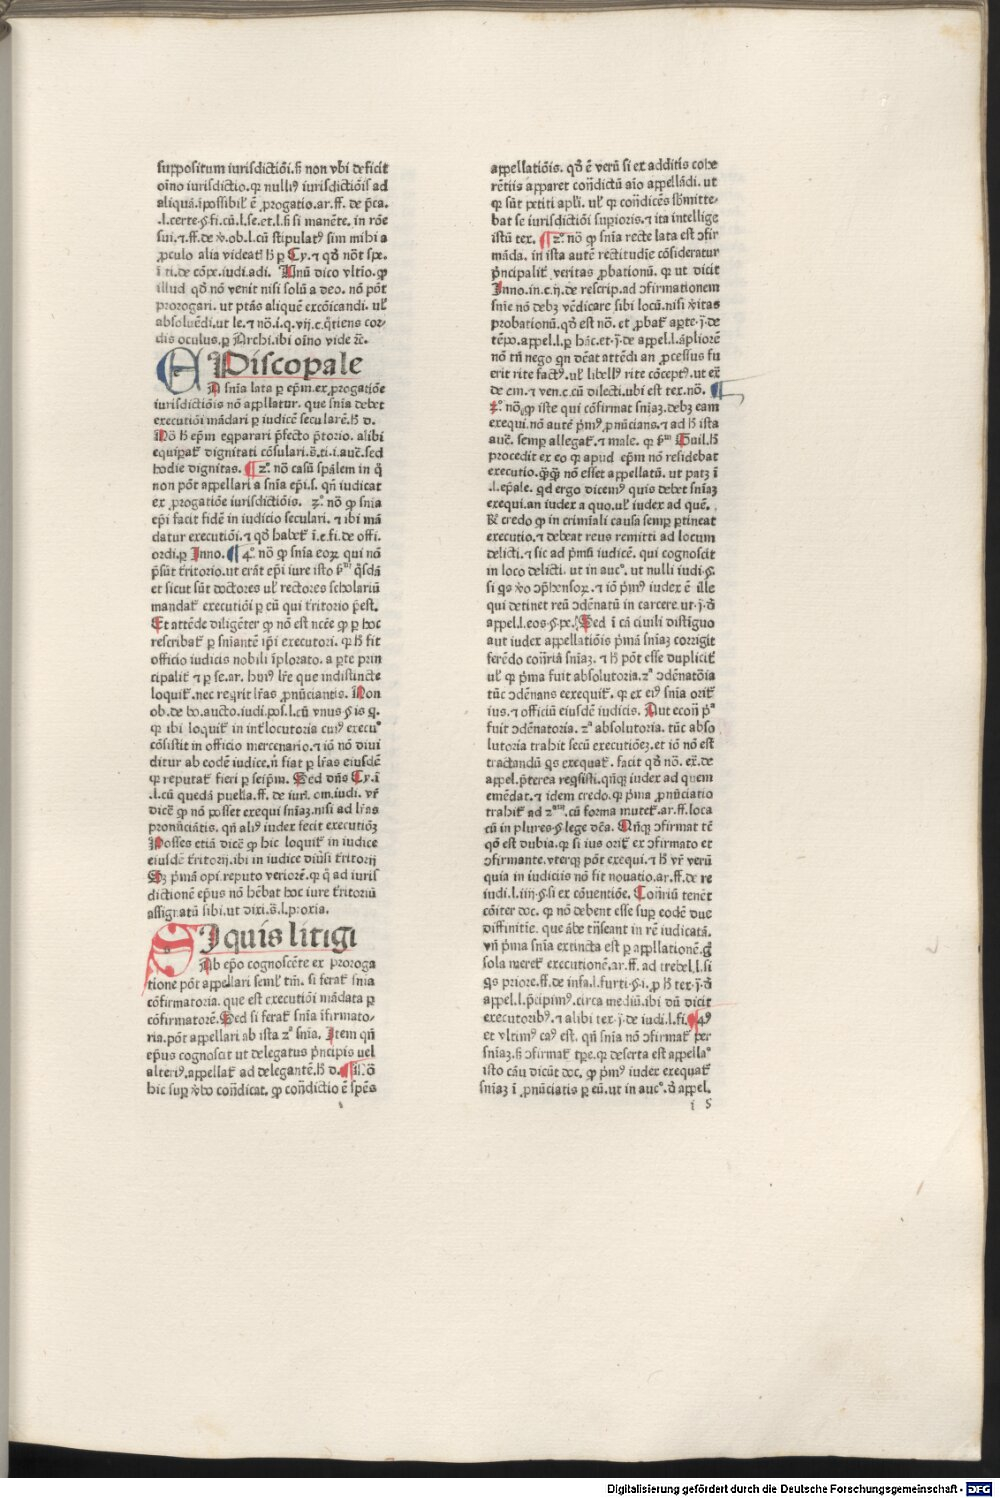 suppositum iurisdictiõi. ħ non vbi deficit
oĩno iurisdictio. qꝫ nullꝰ iurisdictiõis ad
aliquã. ĩpossibil' ẽ ꝓrogatio. ar. ff. de p̃ca.
.l. certe. §. fi. cũ. l. se. et. l. ħ si manẽte. in rõe
sui. ⁊ ff. de v̾. ob. l. cũ stipulatꝰ sim mihi a
ꝓculo alia videat᷑ ħ ꝑ Cy. ⁊ qđ nõt spe.
ĩ ti. de cõpe. iudi. adi. Unũ dico vltĩo. ꝙ
illud qđ nõ venit nisi solũ a deo. nõ põt
prorogari. ut ptãs aliquẽ excõicandi. ul'
absoluẽdi. ut le. ⁊ nõ. i. q. vij. c. q̃tiens cor⸗
dis oculus. ꝑ Archi. ibi oĩno vide ⁊c̃.
EPiscopale
A snĩa lata ꝑ ep̃m. ex ꝓrogatiõe
iurisdictiõis nõ appllatur. que snĩa debet
executiõi mãdari ꝑ iudicẽ secularẽ. ħ d.
Nõ ħ ep̃m eqparari p̃fecto p̃torio. alibi
equiꝑat᷑ dignitati cõsulari. s̃. ti. i. auc̃. sed
hodie dignitas. ¶ 2º. nõ casũ sp̃alem in q̃
non põt appellari a snĩa ep̃i. s. qñ iudicat
ex ꝓrogatiõe iurisdictiõis. 2º. nõ ꝙ snĩa
ep̃i facit fidẽ in iudicio seculari. ⁊ ibi mã
datur executiõi. ⁊ qđ habet᷑ ĩ. e. fi. de offi.
ordi. ꝑ Inno. ¶ 4º. nõ ꝙ snĩa eoꝝ qui nõ
p̃sũt t̃ritorio. ut erãt ep̃i iure isto pᵐ q̃sdã
et sicut sũt doctores ul' rectores scholariũ
mandat᷑ executiõi ꝑ eũ qui t̃ritorio p̃est.
Et attẽde diligẽter ꝙ nõ est nc̃ce ꝙ ꝑ hoc
rescribat᷑ ꝑ sniãntẽ ip̃i executori. ꝙ ħ fit
officio iudicis nobili ĩplorato. a ꝑte prin
cipalit᷑ ⁊ ꝑ se. ar. huiꝰ lr̃e que indistincte
loquit᷑. nec reqrit lr̃as ꝓnũciantis. Non
ob. de bo. aucto. iudi. pos. l. cũ vnus §. is q.
ꝙ ibi loquit᷑ in int̾locutoria cuiꝰ execuº
cõsistit in officio mercenario. ⁊ iõ nõ diui
ditur ab eodẽ iudice. ñ fiat ꝑ lr̃as eiusdẽ
ꝙ reputat᷑ fieri ꝑ seip̃m. Sed dñs Cy. ĩ
.l. cũ quedã puella. ff. de iuri. om. iudi. vr̃
dicẽ ꝙ nõ posset exequi snĩaꝫ. nisi ad lr̃as
pronũciãtis. qñ aliꝰ iudex fecit executiõꝫ
Posses etiã dicẽ ꝙ hic loquit᷑ in iudice
eiusdẽ t̃ritorij. ibi in iudice diũsi t̃ritorij
Sꝫ p̃mã opi. reputo veriorẽ. ꝙ q̃ ad iuris
dictionẽ ep̃us nõ hẽbat hoc iure t̃ritoriũ
assignatũ sibi. ut dixi. s̃. l. proxia.
SI quis litigi
Ab ep̃o cognoscẽte ex proroga
tione põt appellari semel' tm̃. si ferat᷑ snĩa
cõfirmatoria. que est executiõi mãdata ꝑ
cõfirmatorẽ. Sed si ferat᷑ snĩa ĩfirmato⸗
ria. põt appellari ab ista 2ª snĩa. Item qñ
ep̃us cognoscit ut delegatus p̃ncipis uel
alteriꝰ. appellat᷑ ad delegantẽ. ħ d. ¶ Nõ
hic suꝑ v̾bo cond̃icat. ꝙ cond̃ictio ẽ sp̃es
appellatiõis. qđ ẽ verũ si ex additis cohe
rẽtiis apparet cond̃ictũ aĩo appellãdi. ut
ꝙ sũt petiti apl'i. ul' ꝙ cond̃icẽs sb̃mitte⸗
bat se iurisdictiõi suꝑioris. ⁊ ita intellige
istũ tex. ¶ 2º. nõ ꝙ snĩa recte lata est ↄfir
mãda. in ista autẽ rectitudĩe cõsideratur
p̃ncipalit᷑ veritas ꝓbationũ. ꝙ ut dicit
Inno. in. c. ij. de rescrip. ad ↄfirmationem
snĩe nõ debꝫ vẽdicare sibi locũ. nisi v̾itas
probationũ. qđ est nõ. et ꝓbat᷑ aꝑte. j. de
tẽpo. appel. l. ꝑ hãc. et. j. de appel. l. ãpliorẽ
nõ tñ nego qn dẽat attẽdi an ꝓcessus fu
erit rite factꝰ. ul' libellꝰ rite cõceptꝰ. ut ex̃
de em. ⁊ ven. c. cũ dilecti. ubi est tex. nõ. ¶
2º. nõ. ꝙ iste qui cõfirmat snĩaꝫ. debꝫ eam
exequi. nõ autẽ p̃mꝰ ꝓnũcians. ⁊ ad ħ ista
auc̃. semꝑ allegat᷑. ⁊ male. ꝙ pᵐ Guil. ħ
procedit ex eo ꝙ apud ep̃m nõ residebat
executio. q̃ꝫq̃ nõ esset appellatũ. ut patꝫ ĩ
.l. ep̃ale. qd ergo dicemꝰ quis debet snĩaꝫ
exequi. an iudex a quo. ul' iudex ad quẽ.
R̃. credo ꝙ in crimĩali causa semꝑ ꝑtineat
executio. ⁊ debeat reus remitti ad locum
delicti. ⁊ sic ad p̃mũ iudicẽ. qui cognoscit
in loco delicti. ut in aucº. ut nulli iudi. §.
si qs v̾o ↄp̃hensoꝝ. ⁊ iõ p̃mꝰ iudex ẽ ille
qui detinet reũ ↄdẽnatũ in carcere. ut. j. đ
appel. l. eos. §. pe. Sed ĩ cã ciuili distiguo
aut iudex appellatiõis p̃mã snĩaꝫ corrigit
ferẽdo contr̃iã snĩaꝫ. ⁊ ħ põt esse duplicit᷑
ul' ꝙ p̃ma fuit absolutoria. 2ª ↄdẽnatõia
tũc ↄdẽnans eexequit᷑. ꝙ ex eiꝰ snĩa orit᷑
ius. ⁊ officiũ eiusdẽ iudicis. Aut ecoñ pª
fuit ↄdẽnatoria. 2ª absolutoria. tũc abso
lutoria trahit secũ executiõeꝫ. et iõ nõ est
tractandũ qs exequat᷑. facit qđ nõ. ex̃. de
appel. p̃terea reqsisti. qñqꝫ iudex ad quem
emẽdat. ⁊ idem credo. ꝙ p̃ma ꝓnũciatio
trahit᷑ ad 2ᵃᵐ. cũ forma mutet᷑. ar. ff. loca
cũ in plures. §. lege dẽa. Qñqꝫ ↄfirmat tẽ
qõ est dubia. ꝙ si ius orit᷑ ex ↄfirmato et
ↄfirmante. vterqꝫ põt exequi. ⁊ ħ vr̃ verũ
quia in iudiciis nõ fit nouatio. ar. ff. de re
iudi. l. iiij. §. si ex cõuentiõe. Contr̃iũ tenẽt
cõiter doc. ꝙ nõ debent esse suꝑ eodẽ due
diffinitĩe. que ãbe tr̃seant in rẽ iudicatã.
vñ p̃ma snĩa extincta est ꝑ appllationẽ. q̃
sola meret᷑ executionẽ. ar. ff. ad trebel. l. si
qs priore. ff. de infa. l. furti. §. i. ꝓ ħ tex. j. đ
appel. l. p̃cipimꝰ. circa mediũ. ibi dũ dicit
executoribꝰ. ⁊ alibi tex. j. de iudi. l. fi. ¶ 4ꝰ
et vltimꝰ casꝰ est. qñ snĩa nõ ↄfirmat᷑ per
snĩaꝫ. ħ ↄfirmat᷑ tp̃e. ꝙ deserta est appellaº
isto cãu dicũt doc. ꝙ p̃mꝰ iudex exequat᷑
snĩaꝫ ĩ ꝓnũciatis ꝑ eũ. ut in aucº. đ appel.
i 5
Digitalisierung gefördert durch die Deutsche Forschungsgemeinschaft - DFG